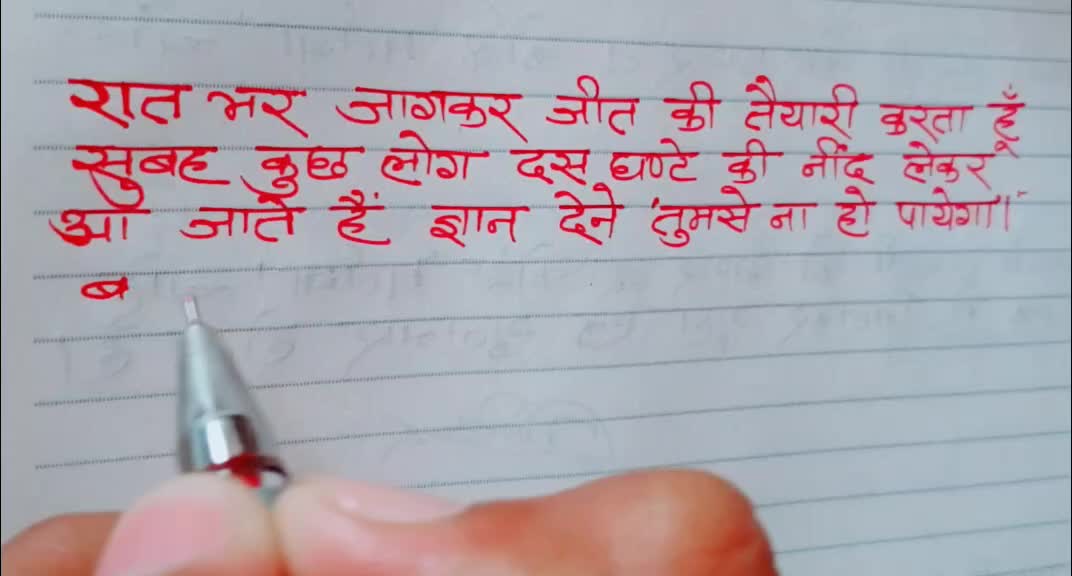 रात भर जागकर जीत की तैयारी करता हूँ
सुबह कुछ लोग दस घण्टे की नींद लेकर
आ जाते हैं ज्ञान देने 'तुमसे ना हो पायेगा।'
ब